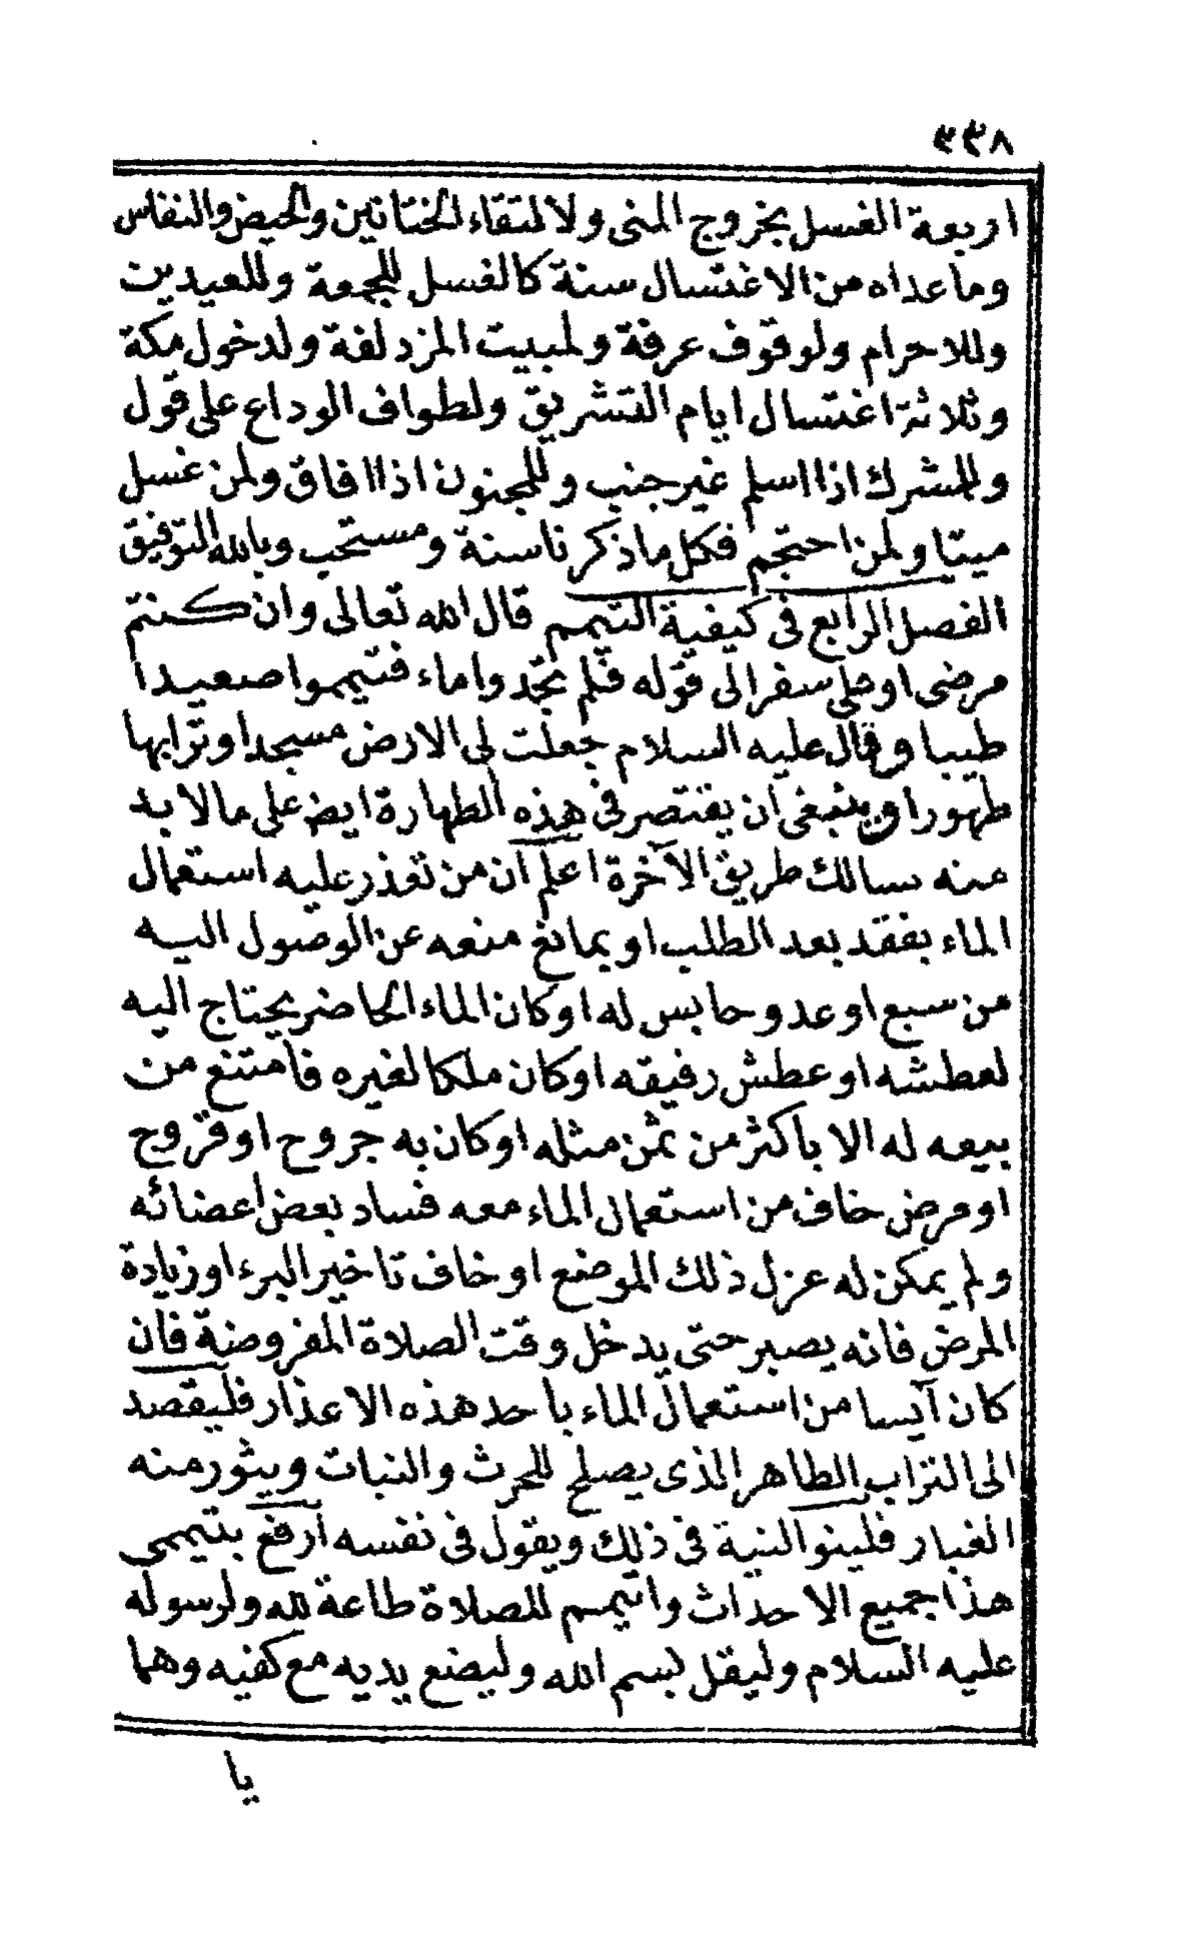 ٣٣٨
اربعة الغسل بخروج المنى ولالتقاء الختانين والحيض والنفاس
وماعداه من الاغتسال سنة كالغسل للجمعة وللعيدين
وللاحرام ولوقوف عرفة ولمبيت المزدلفة ولدخول مكة
وثلاثة اغتسال ايام التشريق ولطواف الوداع على قول
وللمشرك اذا اسلم غير جنب وللمجنون اذا افاق ولمن غسل
ميتا ولمن احتجم فكل ماذكرناسنة ومستحب وبالله التوفيق
الفصل الرابع فى كيفية التيمم قال الله تعالى وان كنتم
مرضى اوعلى سفر الى قوله فلم تجدوا ماء فتيمموا صعيدا
طيبا وقال عليه السلام جعلت لى الارض مسجدا وترابها
طهورا وينبغى ان يقتصر فى هذه الطهارة ايض على مالابد
عنه سالك طريق الآخرة اعلم ان من تعذر عليه استعمال
الماء بفقد بعد الطلب او بمانع منعه عن الوصول اليه
من سبع اوعدو حابس له اوكان الماء الحاضر يحتاج اليه
لعطشه اوعطش رفيقه اوكان ملكا لغيره فامتنع من
بيعه له الا باكثر من ثمن مثله اوكان به جروح اوقروح
اومرض خاف من استعمال الماء معه فساد بعض اعضائه
ولم يمكن له عزل ذلك الموضع اوخاف تاخير البرء اوزيادة
المرض فانه يصبر حتى يدخل وقت الصلاة المفروضة فان
كان آيسا من استعمال الماء باحد هذه الاعذار فليقصد
الى التراب الطاهر الذى يصلح للحرث والنبات ويثور منه
الغبار فلينو النية فى ذلك ويقول فى نفسه ارفع بتيممى
هذا جميع الاحداث واتيمم للصلاة طاعة لله ولرسوله
عليه السلام وليقل بسم الله وليضع يديه مع كفيه وهما
يا